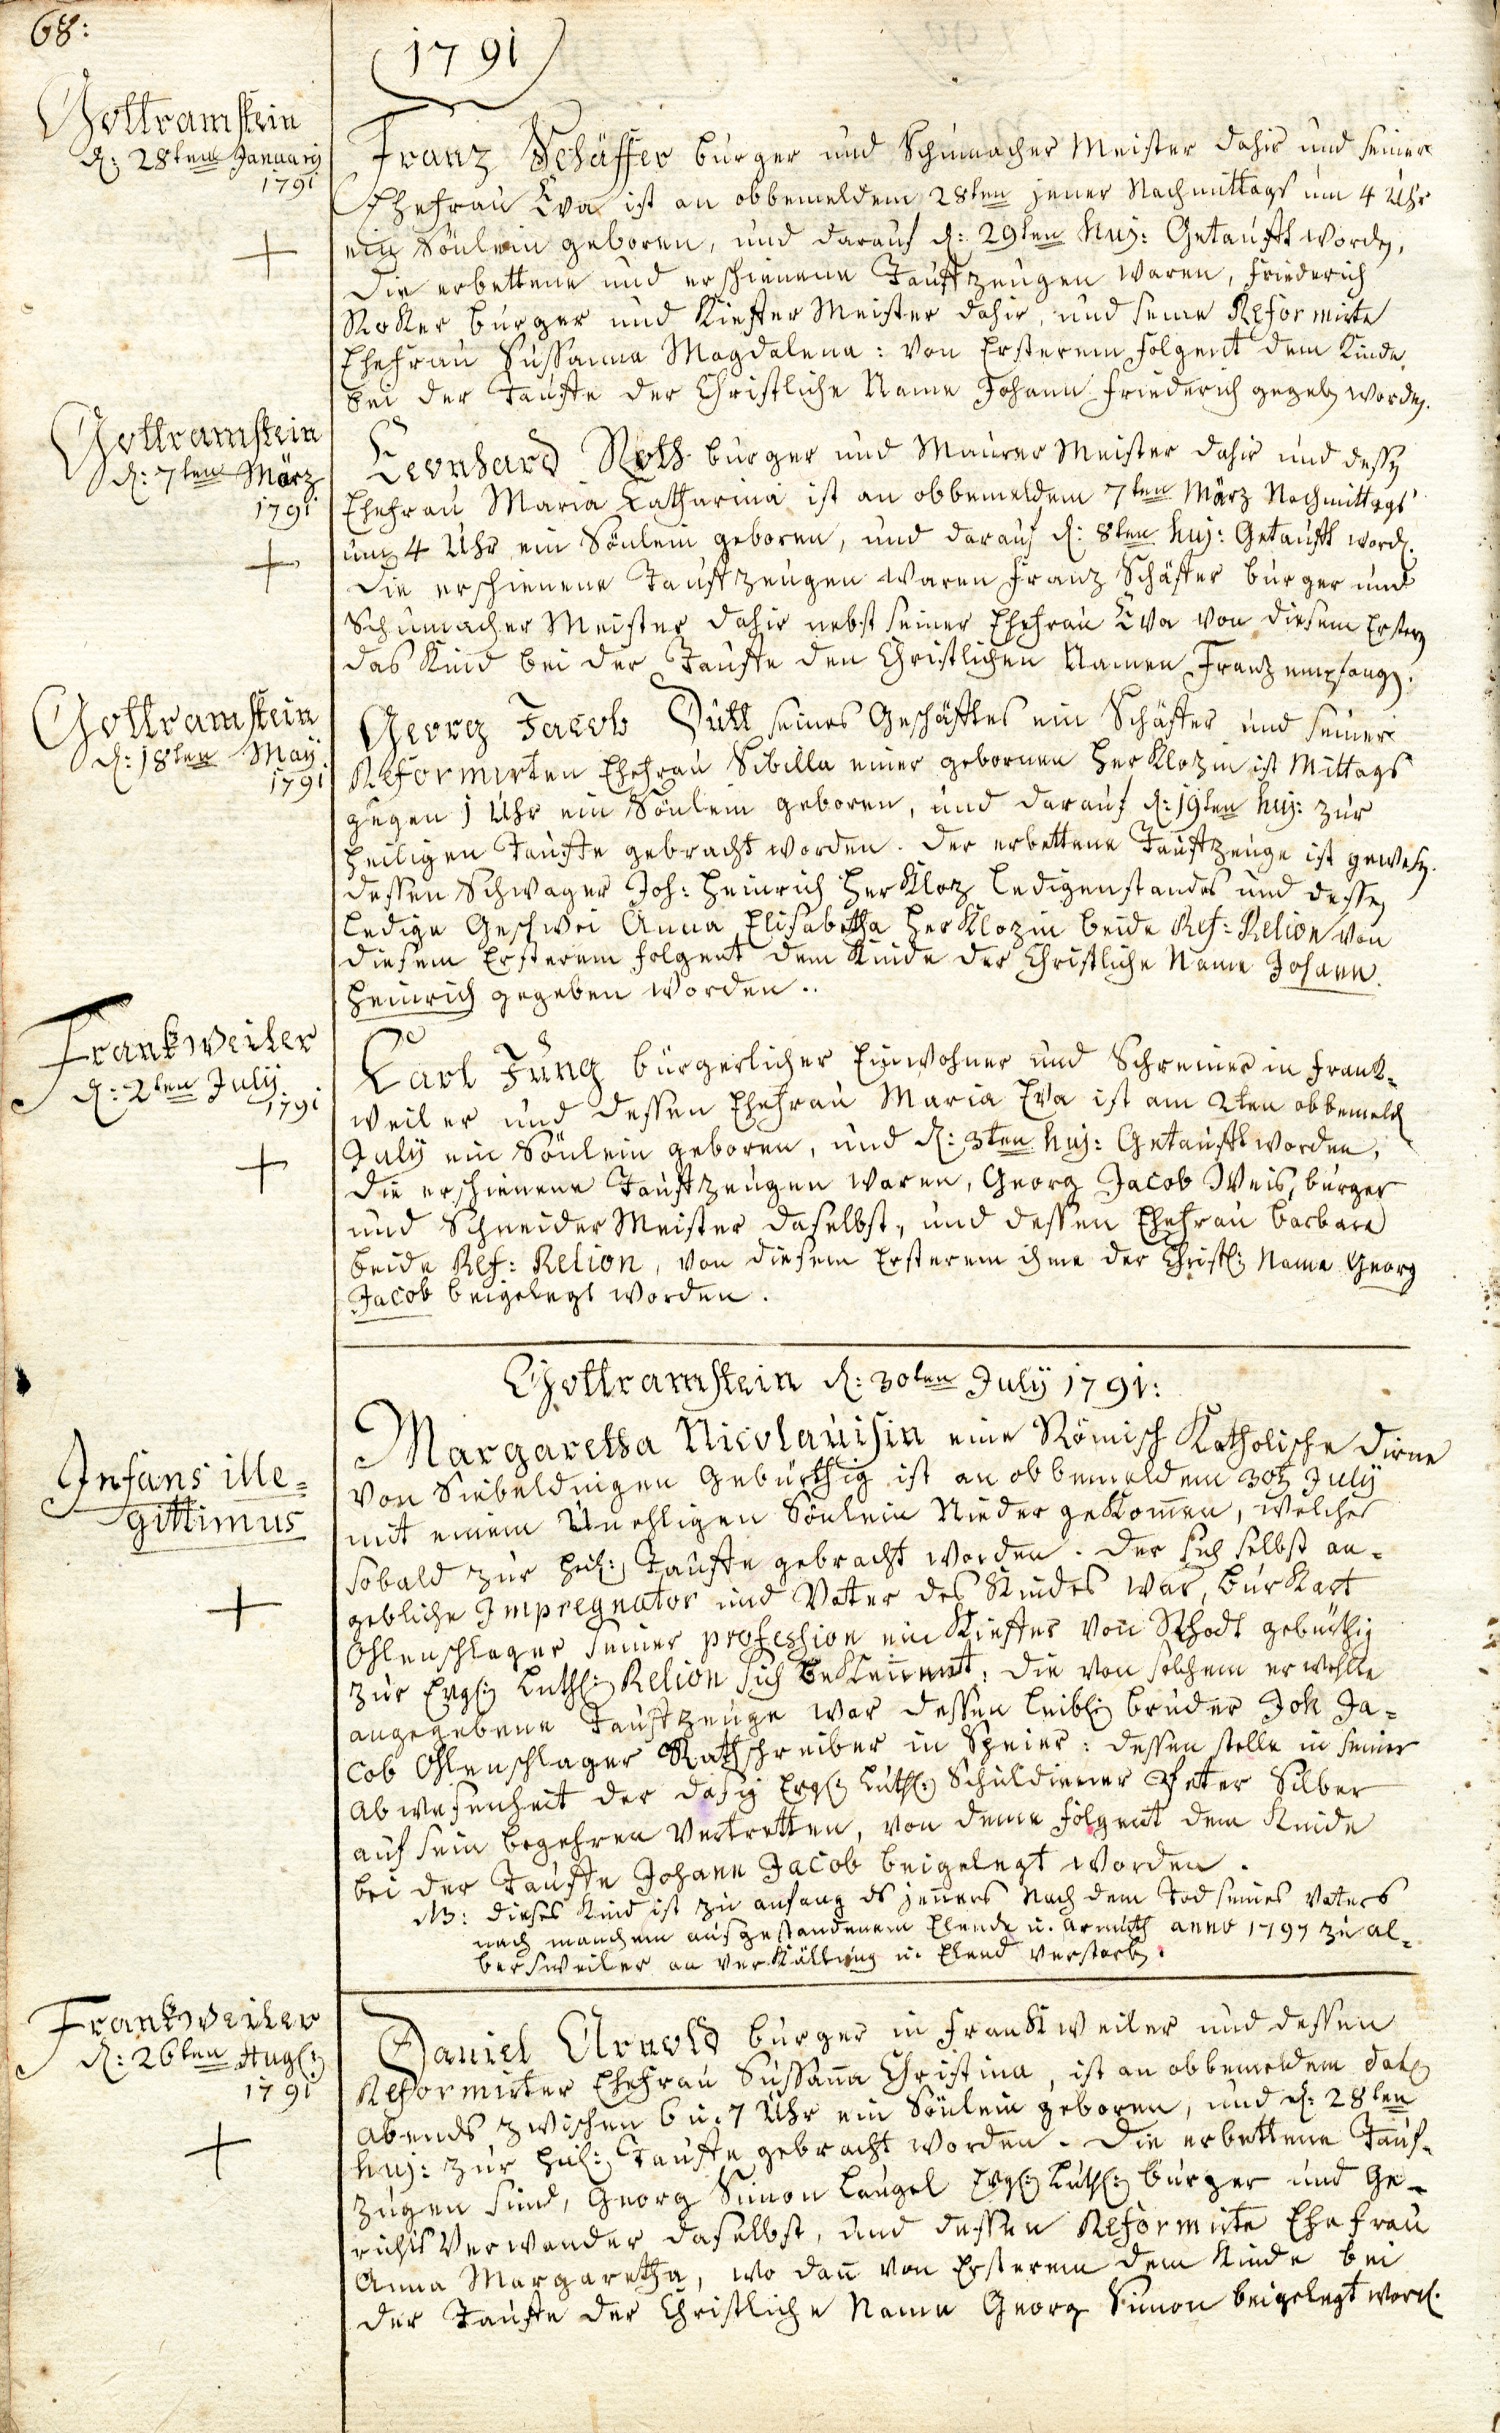 68:
1791
Gottramstein
d: 28ten January
1791
Franz Schäffer burger und Schumacher Meister dahir und seiner
Ehefrau Eva ist an obbemeldem 28ten jener Nachmittags um 4 Uhr
ein Sönlein geboren, und darauf d: 29ten huj: Getaufft worden,
die erbettene und erschienene Tauffzeugen waren, Friederich
burger und Kieffer Meister dahir, und seine Reformirte
Ehefrau Sussanna Magdalena: von Ersterem folgent dem Kinde
bei der Tauffe der Christliche Name Johann Friederich gegeben worden.
Gottramstein
d: 7ten März
1791
Leonhard Roth burger und Maurer Meister dahir und dessen
Ehefrau Maria Catharina ist an obbemeldem 7ten März Nachmittags
um 4 Uhr ein Sönlein geboren, und darauf d: 8ten huj: Getaufft word.
die erschienene Tauffzeugen waren Franz Schäffer burger und
Schumacher Meister dahir nebst seiner Ehefrau Eva von diesem Erstern
das Kind bei der Tauffe den Christlichen Namen Franz empfangen.
Gottramstein
d: 18ten May
1791
Georg Jacob Düll seines Geschäfftes ein Schäffer und seiner
Reformirten Ehefrau Sibilla einer gebornen HerKlozin ist Mittags
gegen 1 Uhr ein Sönlein geboren, und darauf d: 19ten huj: zur
heiligen Tauffe gebracht worden. Der erbettene Tauffzeuge ist gewesen
dessen Schwager Joh: Heinrich HerKloz ledigenstandes und dessen
ledige Geschwei Anna Elisabetha HerKlozin beide Ref: Relion von
diesem Ersterem folgent dem Kinde der Christliche Name Johann
Heinrich gegeben worden..
Frankweiler
d: 2ten July
1791
Carl Jung bürgerlicher Einwohner und Schreiner in Frank-
weiler und dessen Ehefrau Maria Eva ist am 2ten obbemeld
July ein Sönlein geboren, und d: 3ten huj: Getaufft worden,
die erschienene Tauffzeugen waren, Georg Jacob Weis, burger
und Schneider Meister daselbst, und dessen Ehefrau barbara
beide Ref: Relion, von diesem Ersterem ihme der Christl: Name Georg
Jacob beigelegt worden.
Gottramstein d: 30ten July 1791:
Infans ille=
gittimus
Margaretha Nicolauisin eine Römisch Katholische Dirne
von Siebeldingen Gebürthig ist an obbemeldem 30t July
mit einem Unehligen Sönlein Nieder geKommen, welches
sobald zur heil: Tauffe gebracht worden. Der sich selbst an-
gebliche Impregnator und Vater des Kindes war, burKart
Ohlenschlager seiner profession ein Kieffer von Rhodt gebürthig
zur Evgl: Luthl: Relion sich beKennent: die von solchem erwehlte
angegebene Tauffzeuge war dessen leibl: bruder Joh Ja-
cob Ohlenschlager Rathschreiber in Speier: dessen stelle in seiner
abwesenheit der dasig Evgl: Luthl: Schuldiener Peter Silber
auf sein begehren Vertretten, von deme folgent dem Kinde
bei der Tauffe Johann Jacob beigelegt worden.
NB: dieses Kind ist zu anfang ds jeners Nach dem Tod seines Vaters
nach manchem ausgestandenem Elende u. Armuth anno 1797 zu Al-
bersweiler an VerKältung u. Elend verstorben.
Frankweiler
d: 26ten Augl:
1791
Daniel Arnold burger in FranKweiler und dessen
Reformirter Ehefrau Sussana Christina, ist an obbemeldem dato
abends zwischen 6 u. 7 Uhr ein Sönlein geboren, und d: 28ten
huj: zur heil: Tauffe gebracht worden. Die erbettene Tauf-
zeugen sind, Georg Simon Laugel Evgl: Luthl: burger und Ge-
richts Verwander daselbst, und dessen Reformirte Ehefrau
Anna Margaretha, wo dan von Ersterem dem Kinde bei
der Tauffe der Christliche Name Georg Simon beigelegt word.